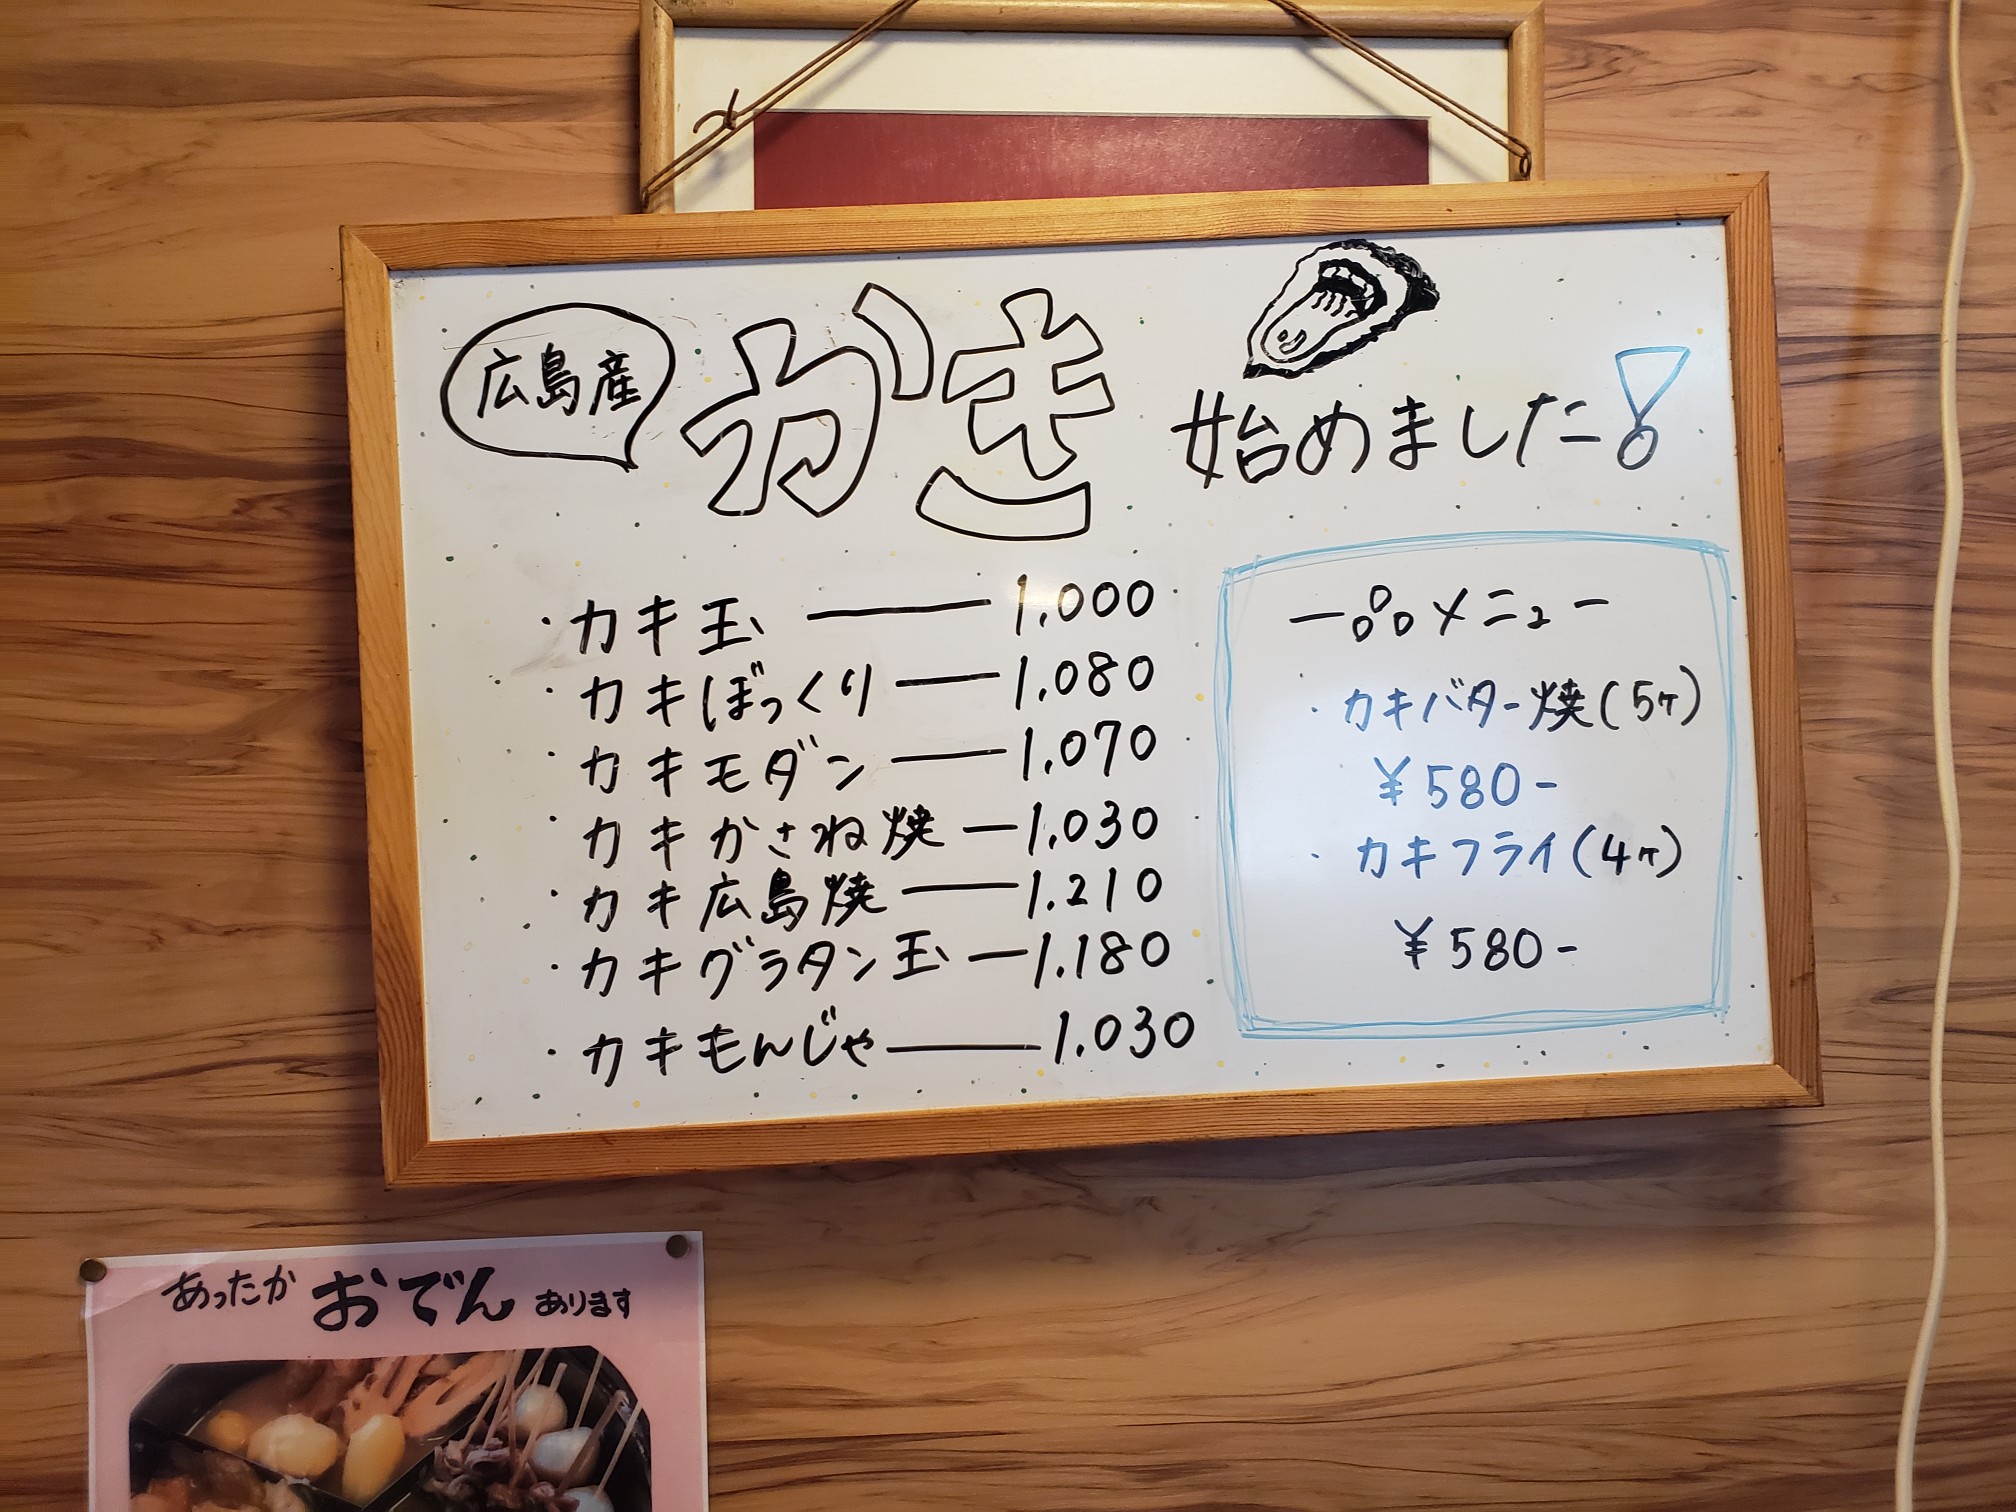 広島産
かき
始めました!
・カキ玉 ― 1.000
・カキぼっくり ― 1.080
・カキモダン ― 1.070
・カキかさね焼 ― 1.030
・カキ広島焼 ― 1.210
・カキグラタン玉 ― 1.180
・カキもんじゃ ― 1.030
一品メニュー
・カキバター焼(5ヶ)
¥580-
・カキフライ(4ヶ)
¥580-
あったか おでん あります